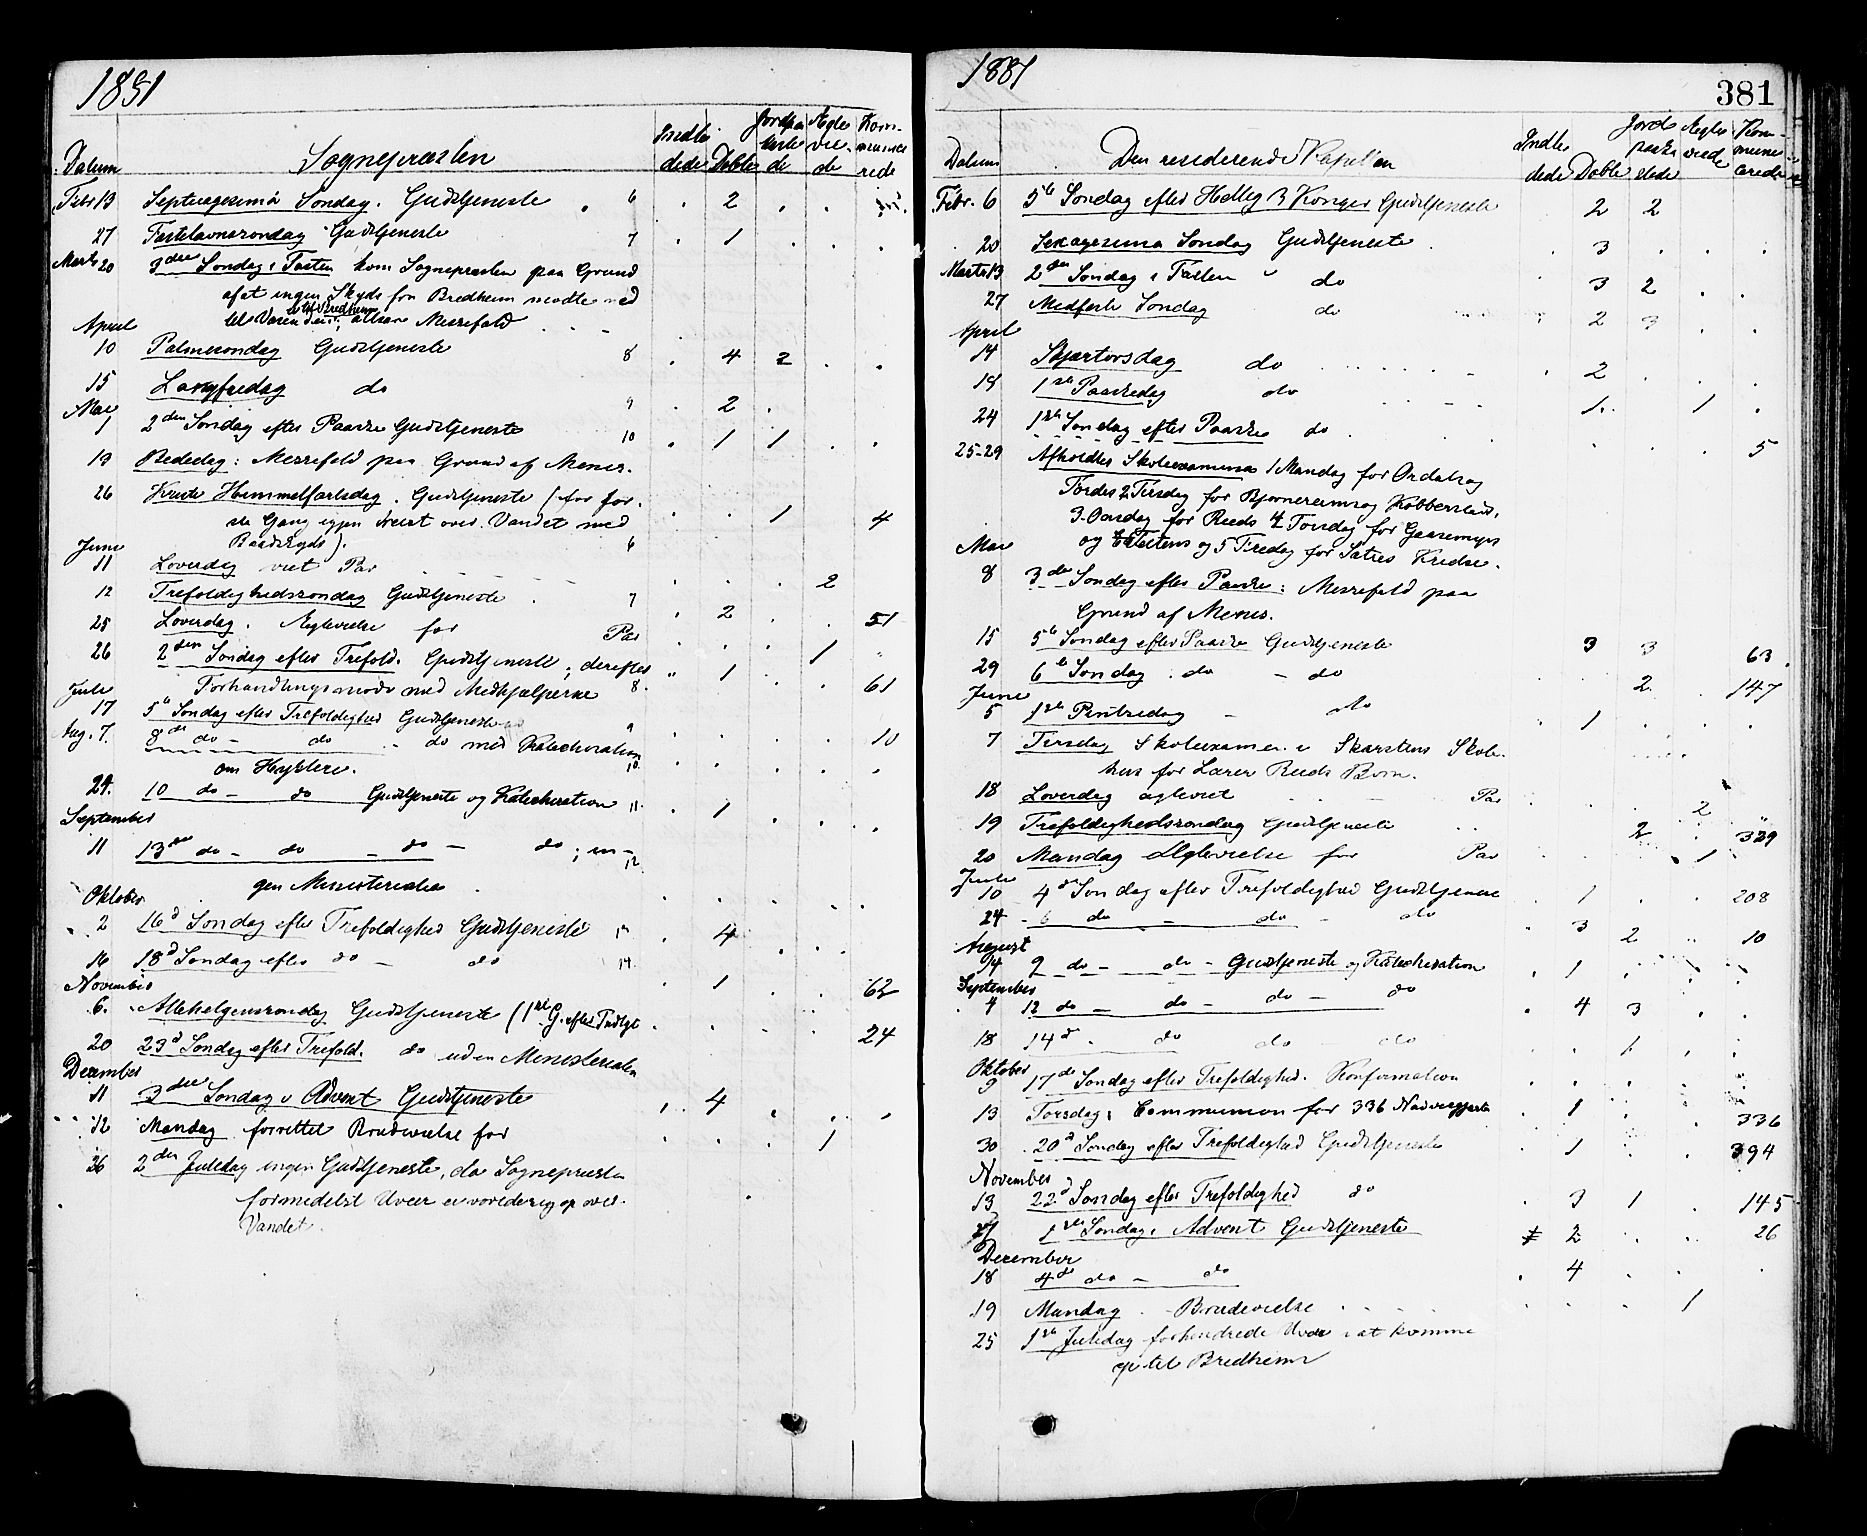 1881
Datum Sognepræsten Indlededes Døbte Jordpaakastede Ægteviede Kommunicerede
Febr 13 Septuagesima Søndag. Gudstjeneste 6 . 2 . .
27 Fastelavnssøndag Gudstjeneste 7 . 1 . . .
Marts 20 3die Søndag i Fasten kom Sognepræsten paa Grund
af at ingen Skyds fra Bredheim mødte ned
til Vasenden; altsaa Messefald
til Bredheim
April
10 Palmesøndag Gudstjeneste 8 . 4 2 . .
15 Langfredag do 9 . 2 .
Mai
1 2den Søndag efter Paaske Gudstjeneste 10 . 1 1 . .
13 Bededag: Messefald paa Grund af Menes.
26 Kristi Himmelfartsdag. Gudstjeneste (for før-
ste Gang igjen reist over Vandet med . . 1 4
Baadskyds). 6
Juni
11 Løverdag viet Par . . . 2
12 Trefoldighedssøndag Gudstjeneste 7 . 2 . . 51
25 Løverdag. Ægtevielse for Par . . . 1
26 2den Søndag efter Trefold. Gudstjeneste; derefter " 1 . . 61
Forhandlingsmøde med Medhjælperne 8.
Juli
17 5te Søndag efter Trefoldighed Gudstjeneste 9 . . . . 10
Aug. 7. 8de do - do - do med Katechisation
om Hyklere. 10. . . . . .
24. 10 do - do Gudstjeneste og Katechisation 11. . 1 . . .
September
11 13de do - do - do - do; in- 12.
gen Ministerialia . . . . .
Oktober
2 16d Søndag efter Trefoldighed Gudstjeneste 13 . 4 . . .
16 18d Søndag efter do - do 14. . 1 . . 62
November
6. Allehelgenssøndag Gudstjeneste (1ste G. efter Indlgt . . . . 24
20 23d Søndag efter Trefold. do uden Ministerialia
December
11 3die Søndag i Advent Gudstjeneste . 4 . . .
12 Mandag forrettet Brudevielse for . . . 1
26 2den Juledag ingen Gudstjeneste, da Sognepræsten
formedelst Uveir ei vovede sig op over
Vandet.
1881 381
Datum Den residerende Kapellan Indlededes Døbte Jordpaakastede Ægteviede Kommunicerede
Febr. 6 5te Søndag efter Hellig 3 Konger Gudstjeneste 2 2
20 Sexagesima Søndag Gudstjeneste . 3 . . .
Marts 13 2den Søndag i Fasten do 3 2 . .
27 Midfaste Søndag do 2 3 . .
April
14 Skjærtorsdag do . 2 . . .
18 1ste Paaskedag do 1. 1 .
24 1ste Søndag efter Paaske do . . . . 5
25-29 Afholdtes Skoleexamina 1 Mandag for Ordals og
Tordes 2 Tirsdag for Bjørnereims og Kobberstad.
3. Onsdag for Reeds 4 Torsdag for Gaasemyrs
og Eidets og 5 Fredag for Sætres Kredse.
Mai
8 3die Søndag efter Paaske: Messefald paa
Grund af Menes.
15 5te Søndag efter Paaske Gudstjeneste 3 3 63.
29 6te Søndag. do - do 2. . 147
Juni
5 1ste Pintsedag - do . 1 . . .
7 Tirsdag Skoleexamen i Skarstens Skole-
hus for Lærer Reeds Børn.
18 Løverdag ægteviet Par . . 2
19 Trefoldighedssøndag Gudstjeneste 2 . 329
20 Mandag Ægtevielse for Par . 1
Juli
10 4de Søndag efter Trefoldighed Gudstjeneste . 1 . . 208
24 - 6 do - do - do . 3 2 " 10
August
14 9 do - do - Gudstjeneste og Katechisation . 1 . . .
September
4 12 do - do - do - do . 4 3 . .
18 14d . do do - do . . 1 . .
Oktober
9 17de Søndag efter Trefoldighed. Konfirmation . . . . .
13 Torsdag: Communion for 336 Nadvergjæster . 1 . . 336
30 20d Søndag efter Trefoldighed Gudstjeneste . 1 . . 394
November
13 22d Søndag efter Trefoldighed do . 3 1 . 145
27 1ste Søndag i Advent Gudstjeneste 2 . . 26
December
18 4de do - do . 4 . . .
19 Mandag. Brudevielse . . . 1
25 1ste Juledag forhindrede Uveir i at komme
op til Bredheim